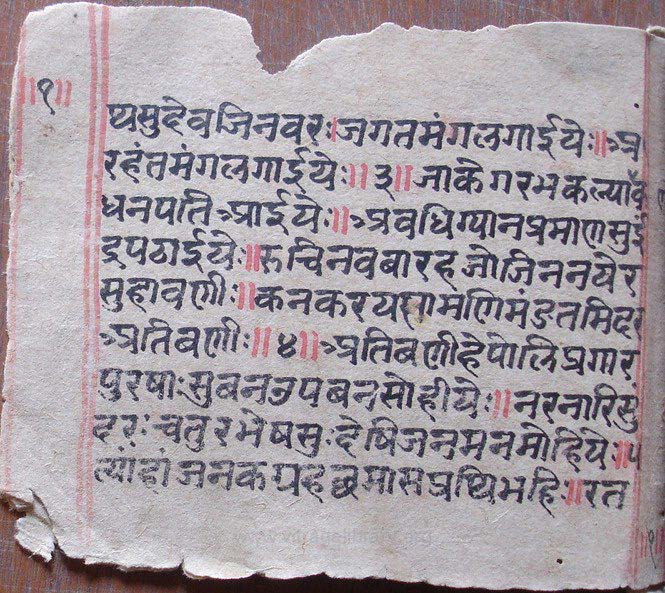 ॥१॥
प्यसुदेवजिनवरः।जगतमंगलगाईयेः॥अ
रहंतमंगलगाईयेः॥३॥जाकेगरभकल्याँक
धनपतिआईयेः॥अवधिग्यानप्रमाणसुई
द्रपठाईयेः॥रुचिनवबारहजोजिननयेर
सुहावणीः॥कनकरयणमणिमंडतमिदर
अतिबणीः॥४॥अतिबणीहेपोलिप्रगार
पुरषाःसुबनउपबनसोहीयेः॥नरनारिसुं
दरःचतुरभेषसुःदेषिजनमनमोहियेः॥५
त्यांहांजनकग्रहछमासप्रथिमहिः॥रत